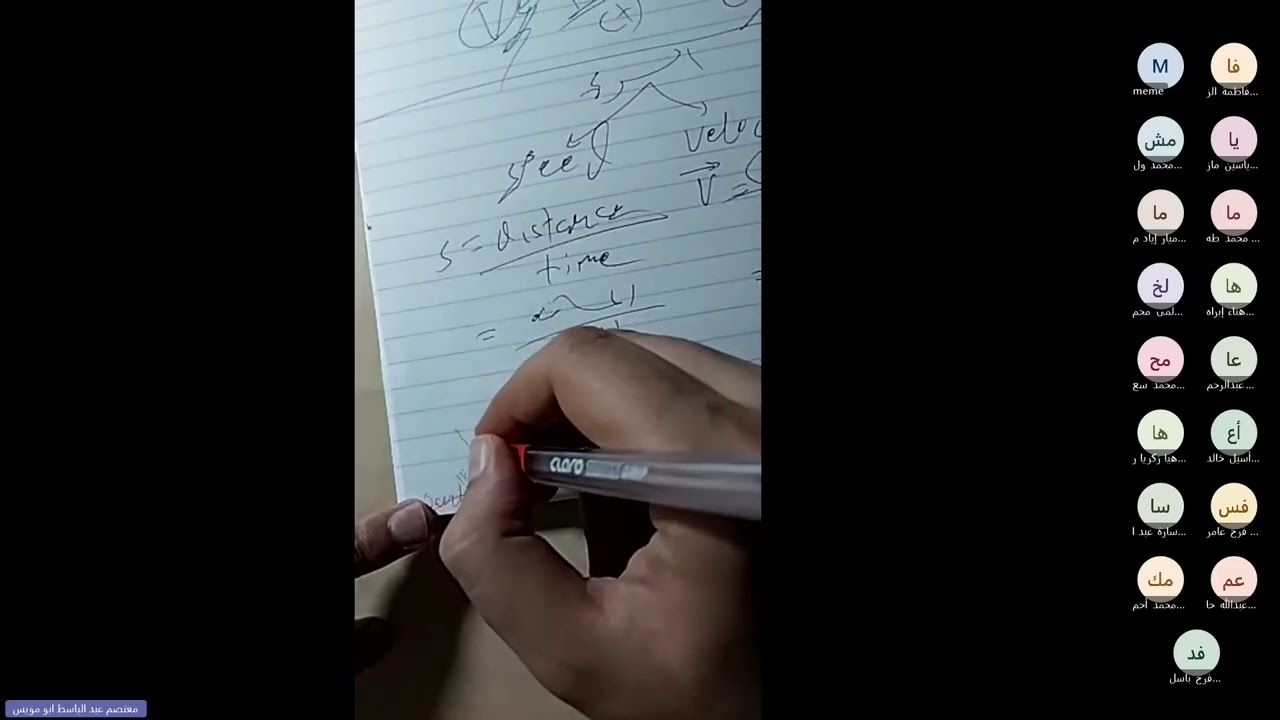 speed
Veloc
V =
s = distance
time
=
claro
M
meme
فا
فاطمة الز...
مش
محمد ول...
يا
ياسين ماز...
ما
ميار إياد م...
ما
محمد طه...
لخ
لمى محم...
ها
هناء إبراه...
مح
محمد سع...
عا
عبدالرحم...
ها
هيا زكريا ر...
أع
أسيل خالد...
سا
سارة عبد ا...
فس
فرح عامر...
مك
محمد أحم...
عم
عبدالله حا...
فد
فرح باسل...
معتصم عبد الباسط ابو مويس